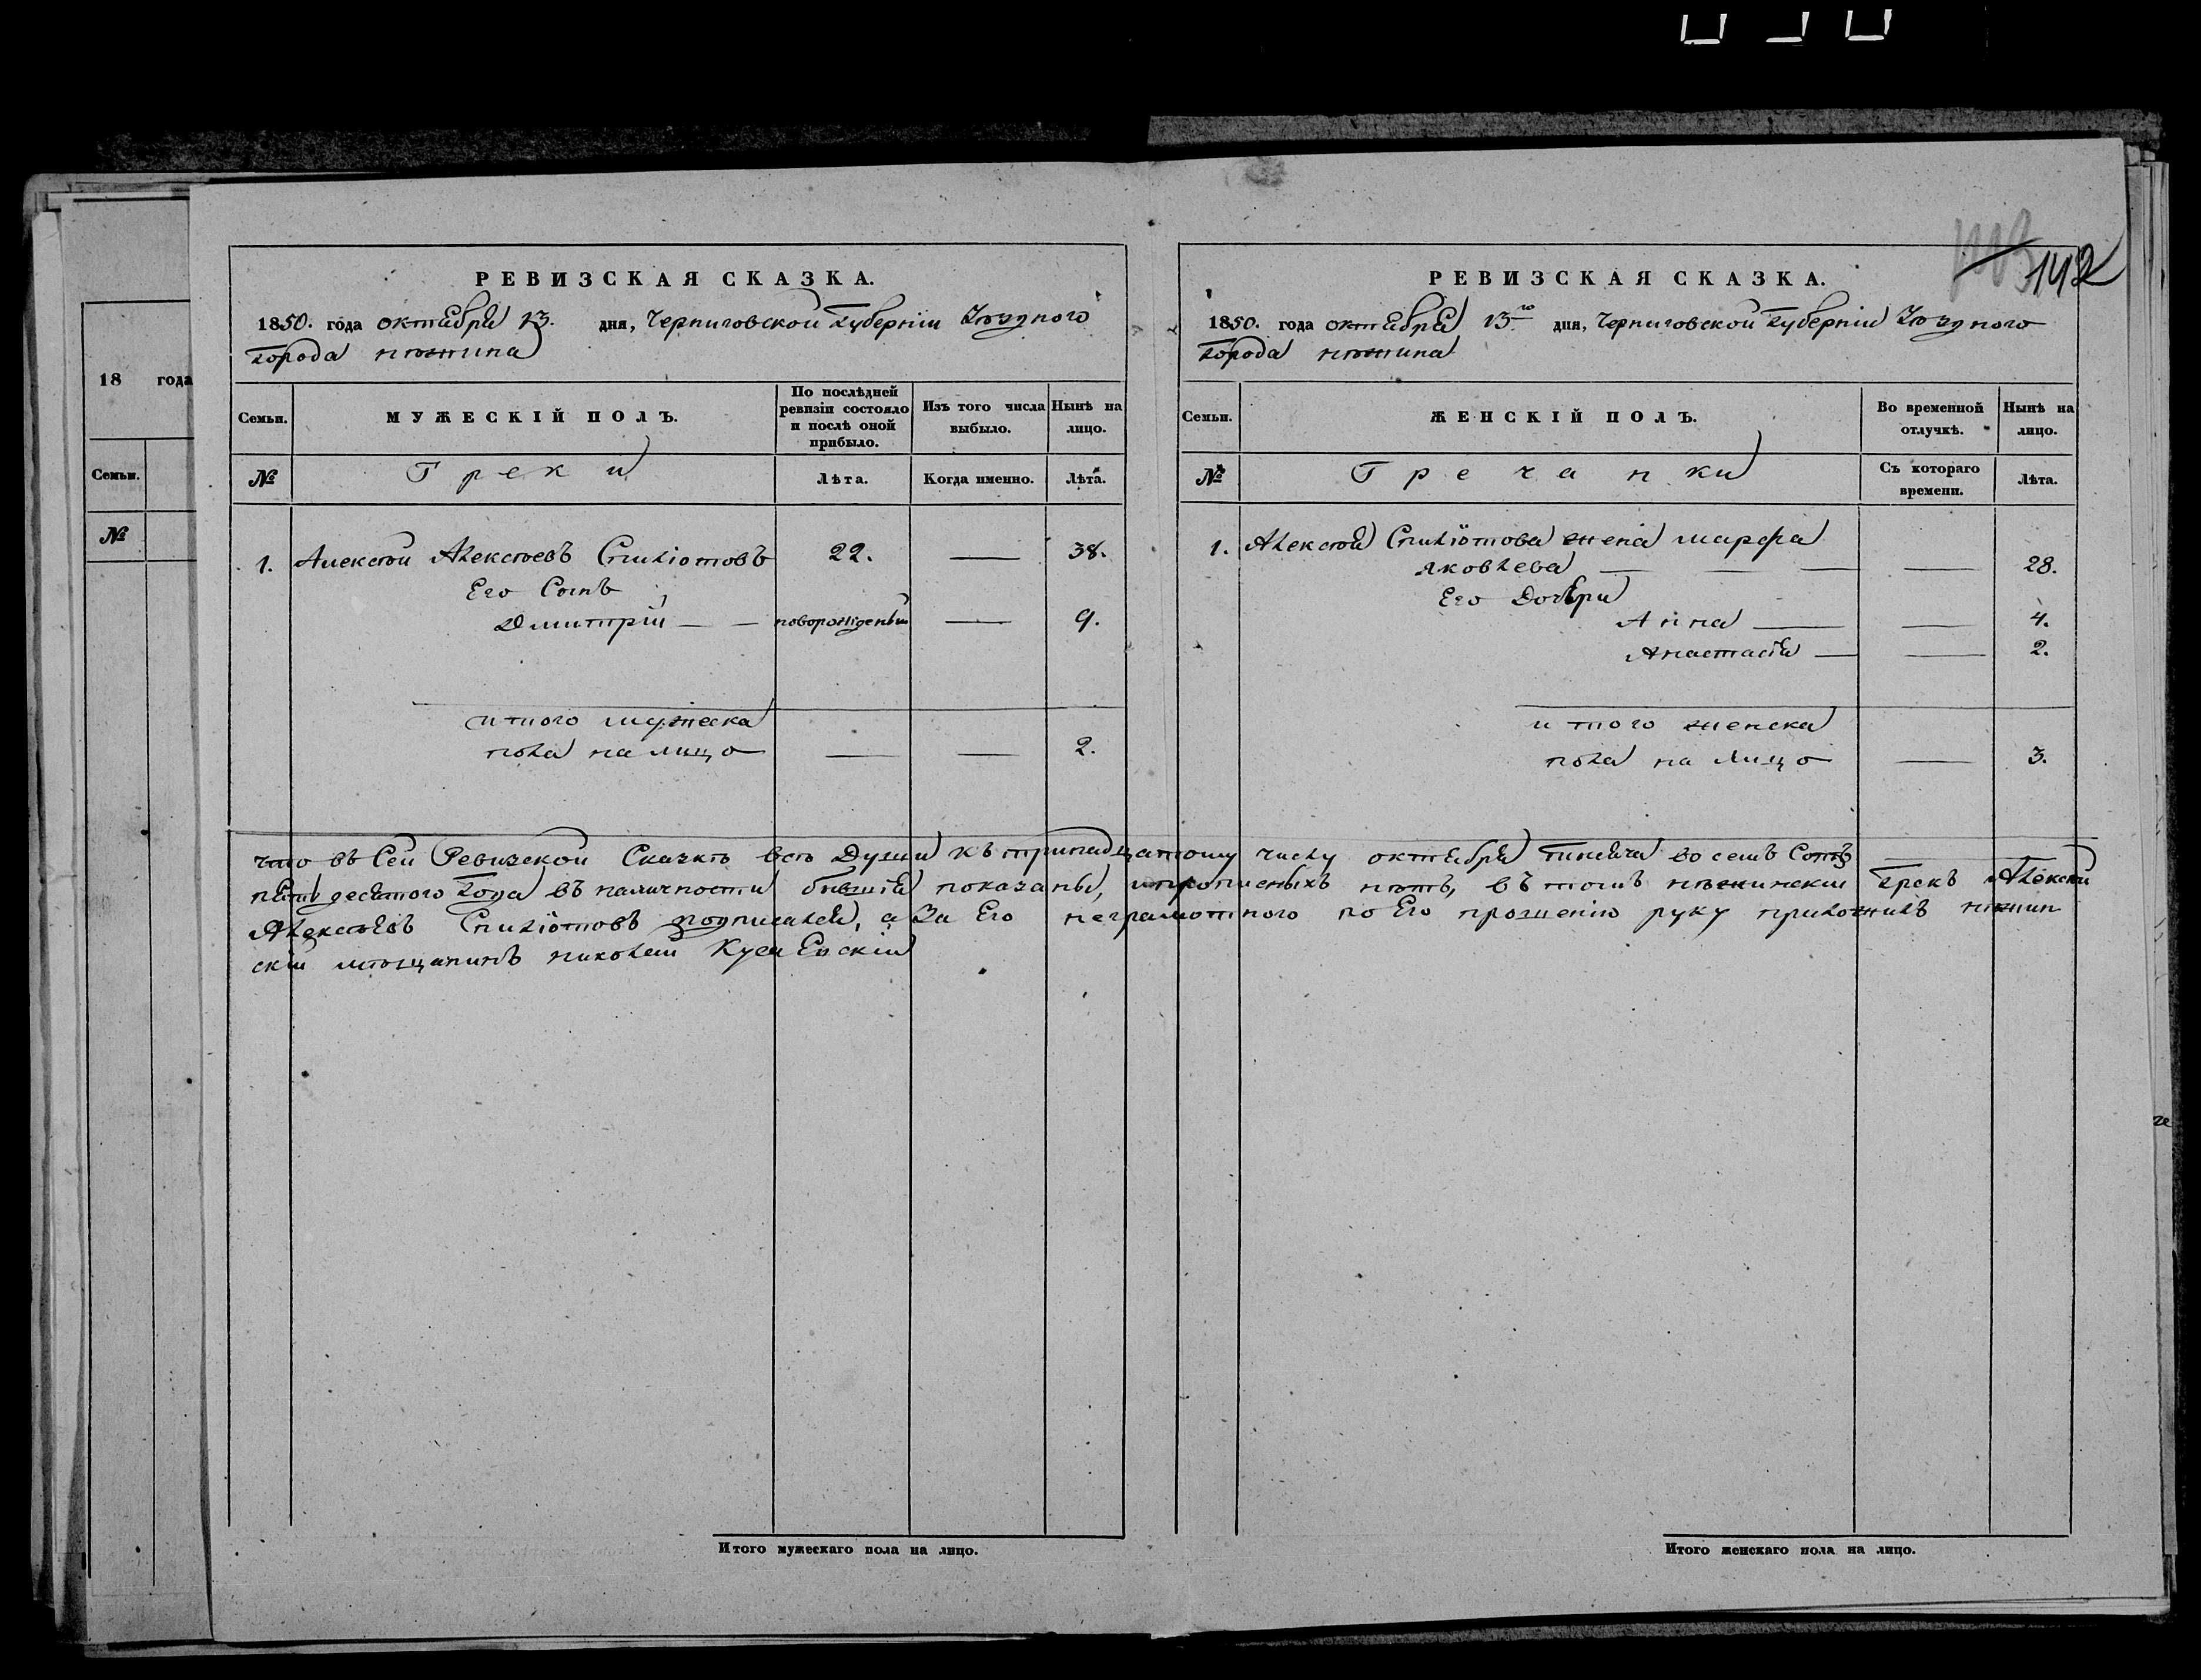 142
РЕВИЗСКАЯ СКАЗКА.
1850. года октября 13. дня, Черниговской губерніи Уѣзднаго
города нѣжина
Семьи.
МУЖЕСКІЙ ПОЛЪ.
По послѣдней ревизіи состояло и послѣ оной прибыло.
Изъ того числа выбыло.
Нынѣ на лицо.
№
Греки
Лѣта.
Когда именно.
Лѣта.
1. Алексѣй Алексѣевъ Спиліотовъ 22. — 38.
Его Сынъ
Дмитрій — — новорожденый — 9.
итого мужеска
пола на лицо — — 2.
РЕВИЗСКАЯ СКАЗКА.
1850. года октября 13го дня, Черниговской губерніи Уѣзднаго
города нѣжина
Семьи.
ЖЕНСКІЙ ПОЛЪ.
Во временной отлучкѣ.
Нынѣ на лицо.
№
Гречанки
Съ котораго времени.
Лѣта.
1. Алексѣя Спиліотова жена марфа
яковлева — — — — 28.
Его Дочери
Анна — — 4.
Анастасія — — 2.
итого женска
пола на лицо — 3.
что въ Сей Ревизской Сказкѣ всѣ Души къ тринадцатому числу октября тысяча восемъ Сотъ
пятьдесятого Года въ наличности бывшія показаны, и прописныхъ нѣтъ, въ томъ нѣжинскій Грекъ Алексѣй
Алексѣевъ Спиліотовъ подписался, а За Его неграмотного по Его прошенію руку приложилъ нѣжин
скій мѣщанинъ николай
Итого мужескаго пола на лицо.
Итого женскаго пола на лицо.
18 года
Семьи.
№